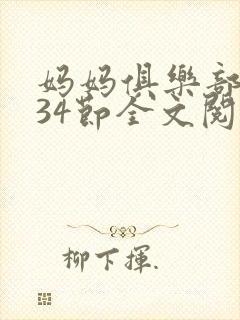 妈妈俱樂部
34節全文閱
柳下揮.